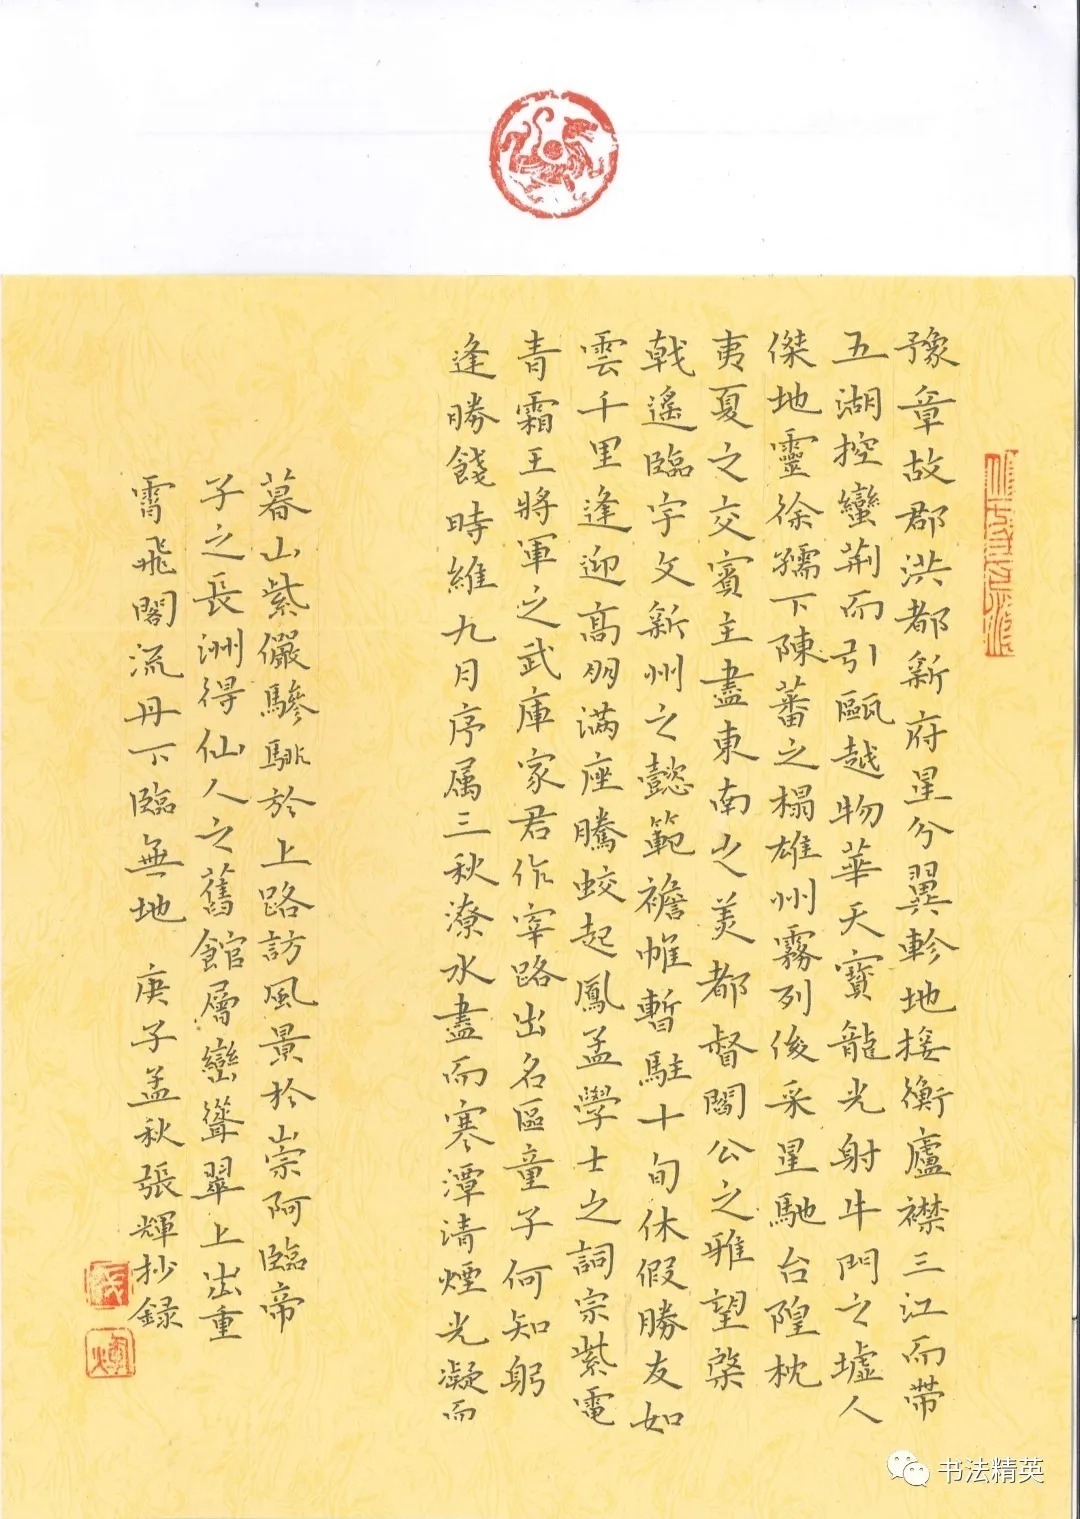 豫章故郡洪都新府星分翼軫地接衡廬襟三江而帶
五湖控蠻荆而引甌越物華天寶龍光射牛鬥之墟人
傑地靈徐孺下陳蕃之榻雄州霧列俊采星馳台隍枕
夷夏之交賓主盡東南之美都督閻公之雅望棨
戟遙臨宇文新州之懿範襜帷暫駐十旬休假勝友如
雲千里逢迎高朋滿座騰蛟起鳳孟學士之詞宗紫電
青霜王將軍之武庫家君作宰路出名區童子何知躬
逢勝餞時維九月序属三秋潦水盡而寒潭清煙光凝而
暮山紫儼驂騑於上路訪風景於崇阿臨帝
子之長洲得仙人之舊館層巒聳翠上出重
霄飛閣流丹下臨無地 庚子孟秋張輝抄録
书法精英